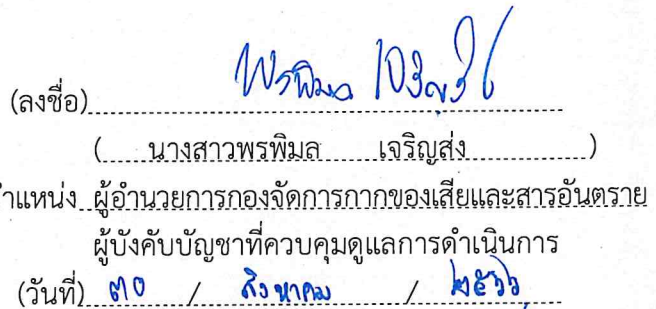 (ลงชื่อ) พรพิมล เจริญส่ง
( นางสาวพรพิมล เจริญส่ง )
ตำแหน่ง ผู้อำนวยการกองจัดการกากของเสียและสารอันตราย
ผู้บังคับบัญชาที่ควบคุมดูแลการดำเนินการ
(วันที่) ๓๐ / สิงหาคม / ๒๕๖๖